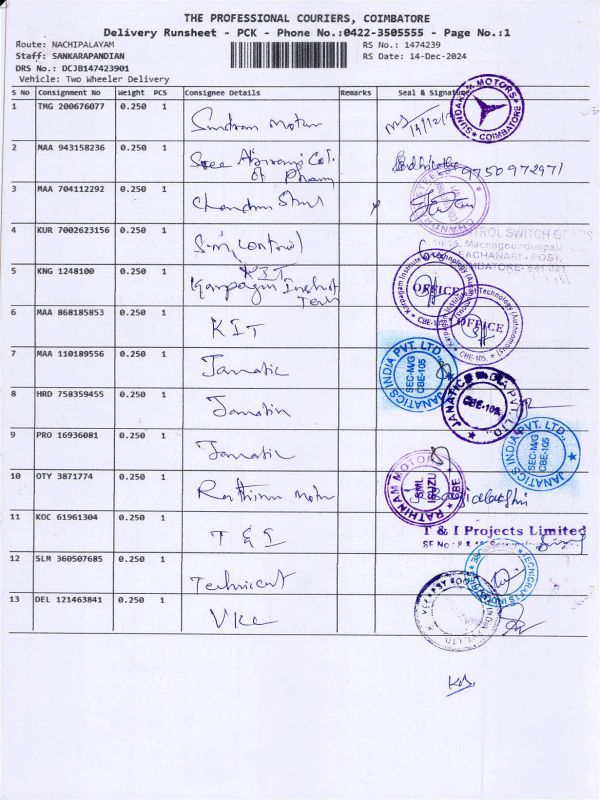 THE PROFESSIONAL COURIERS, COIMBATORE
Delivery Runsheet - PCK - Phone No.:0422-3505555 - Page No.:1
Route: NACHIPALAYAM
RS No.: 1474239
Staff: SANKARAPANDIAN
RS Date: 14-Dec-2024
DRS No.: DCJB147423901
Vehicle: Two Wheeler Delivery
S No Consignment No Weight PCS Consignee Details Remarks Seal & Signature
1 TMG 200676077 0.250 1 Sundram Motors SUNDARAM MOTORS COIMBATORE
2 MAA 943158236 0.250 1 Sree Abirami Col. of Pharm 9750972971
3 MAA 704112292 0.250 1 Chandra
4 KUR 7002623156 0.250 1 S.M. Control CONTROL SWITCH
5 KNG 1248100 0.250 1 KIT Karpagam Institut Tech Karpagam Institute of Technology OFFICE CBE-105
6 MAA 868185853 0.250 1 KIT Karpagam Institute of Technology (Autonomous) OFFICE CBE-105.
7 MAA 110189556 0.250 1 Janatic JANATICS INDIA PVT. LTD., SEC-M/G CBE-105
8 HRD 758359455 0.250 1 Janatic JANATICS INDIA PVT. LTD., CBE-105.
9 PRO 16936081 0.250 1 Janatic JANATICS INDIA PVT. LTD., SEC-M/G CBE-105
10 OTY 3871774 0.250 1 Rathinam Motor RATHINAM MOTORS CBE SML ISUZU
11 KOC 61961304 0.250 1 T & I T & I Projects Limited
12 SLM 360507685 0.250 1 Technicraft
13 DEL 121463841 0.250 1 VKC